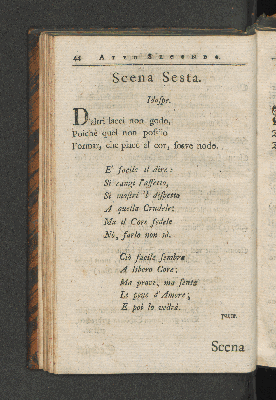 44 ATTO SECONDO.
Scena Sesta.
Idaspe.
D'altri lacci non godo,
Poichè quel non posso
Formar, che piace al cor, soave nodo.
E' facile il dire:
Si cangi l'affetto,
Si mostri 'l dispetto
A quella Crudele;
Ma il Core fedele
Nò, farlo non sà.
Ciò facile sembra
A libero Core;
Ma prove, ma senta
Le pene d'Amore,
E poi lo vedrà.
parte.
Scena